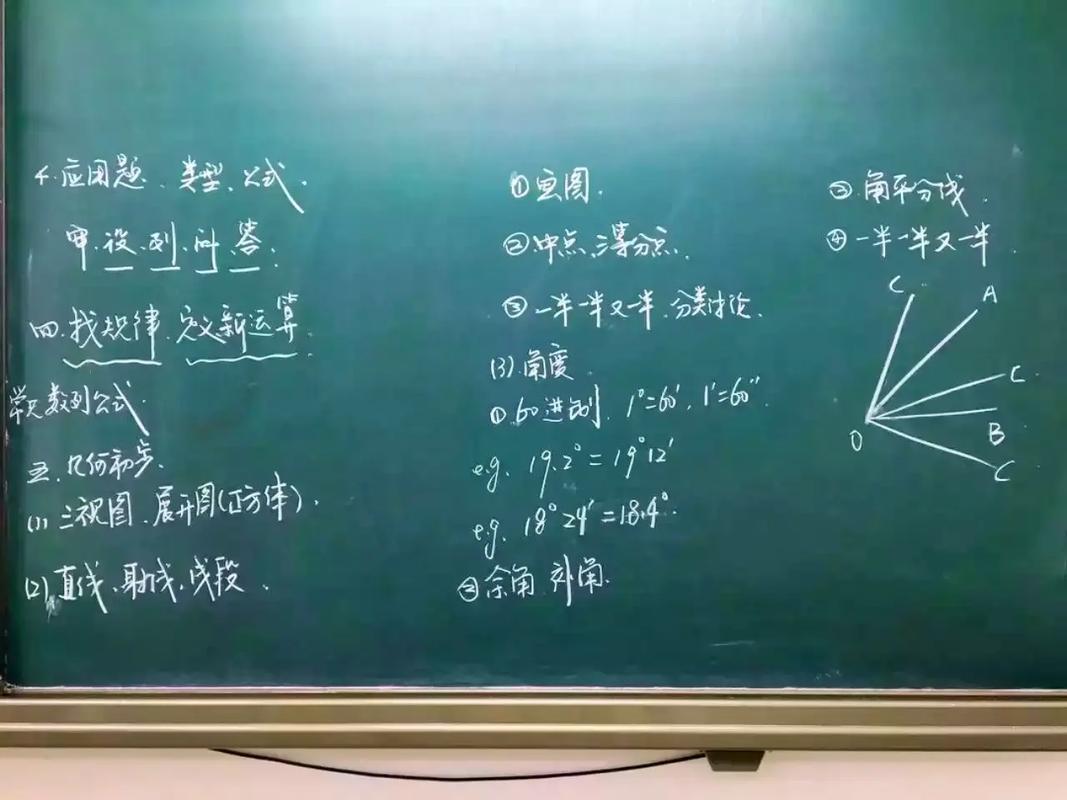 4.应用题、类型、公式.
审.设.列.问.答.
四.找规律.定义新运算.
常见数列公式.
五.几何初步.
(1)三视图、展开图(正方体).
(2)直线、射线、线段.
①画图.
②中点、三等分点.
③一半一半又一半.分类讨论.
(3).角度.
①.60进制. 1°=60′. 1′=60″.
e.g. 19.2°=19°12′
e.g. 18°24′=18.4°.
②余角.补角.
③.角平分线.
④一半一半又一半.
C
A
C
B
C
O